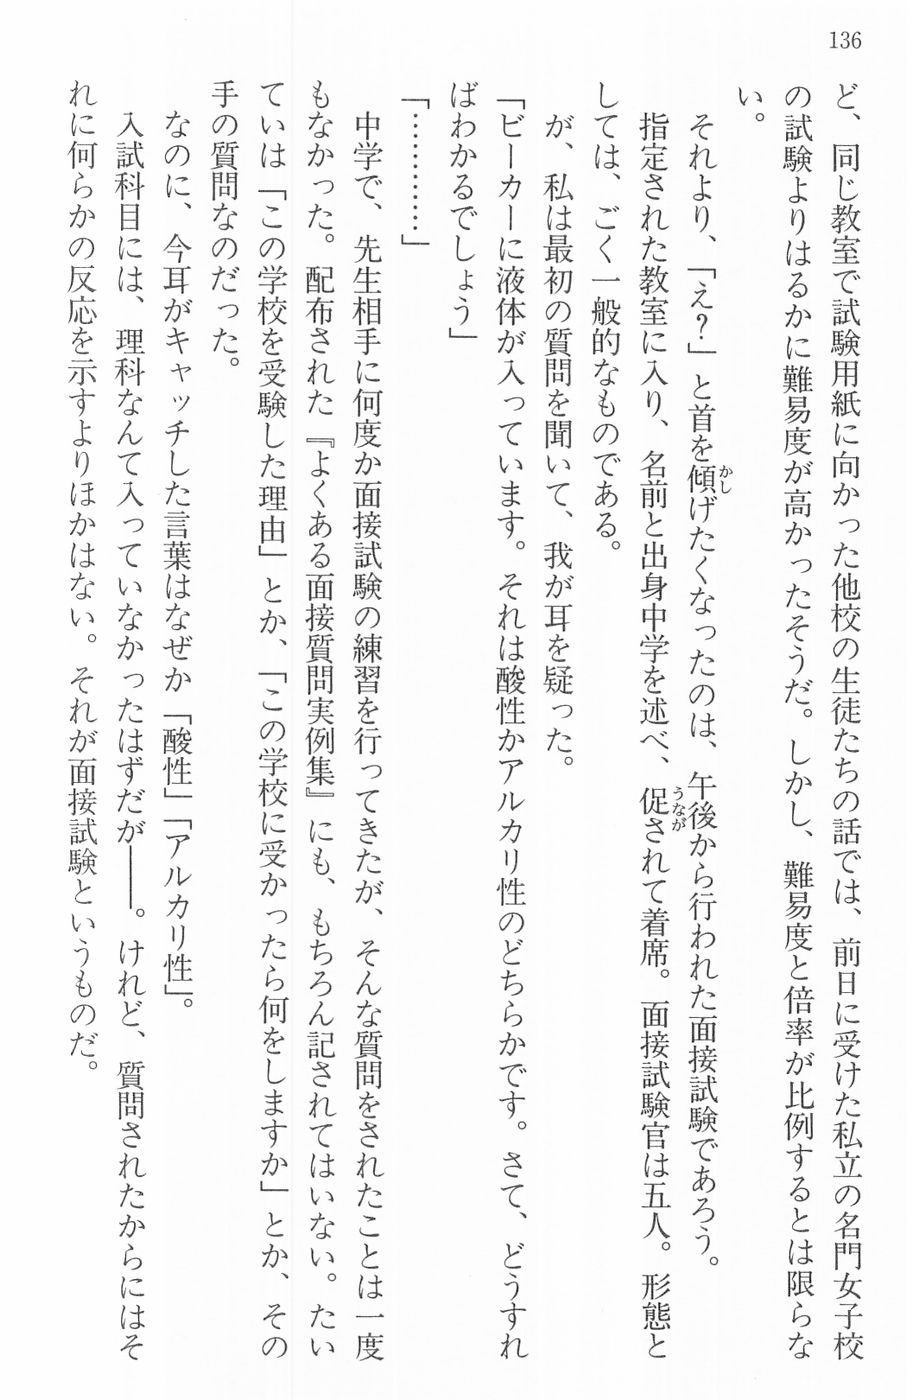 136
ど、同じ教室で試験用紙に向かった他校の生徒たちの話では、前日に受けた私立の名門女子校
の試験よりはるかに難易度が高かったそうだ。しかし、難易度と倍率が比例するとは限らな
い。
それより、「え？」と首を傾げたくなったのは、午後から行われた面接試験であろう。
指定された教室に入り、名前と出身中学を述べ、促されて着席。面接試験官は五人。形態と
しては、ごく一般的なものである。
が、私は最初の質問を聞いて、我が耳を疑った。
「ビーカーに液体が入っています。それは酸性かアルカリ性のどちらかです。さて、どうすれ
ばわかるでしょう」
「…………」
中学で、先生相手に何度か面接試験の練習を行ってきたが、そんな質問をされたことは一度
もなかった。配布された『よくある面接質問実例集』にも、もちろん記されてはいない。たい
ていは「この学校を受験した理由」とか、「この学校に受かったら何をしますか」とか、その
手の質問なのだった。
なのに、今耳がキャッチした言葉はなぜか「酸性」「アルカリ性」。
入試科目には、理科なんて入っていなかったはずだが――。けれど、質問されたからにはそ
れに何らかの反応を示すよりほかはない。それが面接試験というものだ。